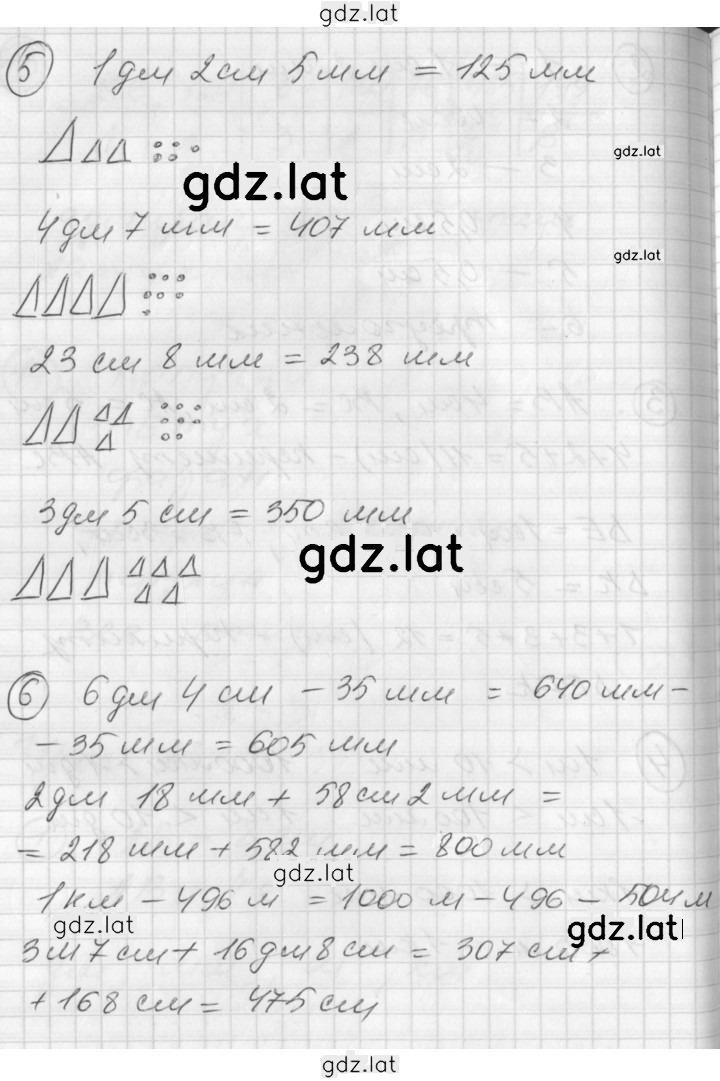 gdz.lat
5 1дм 2см 5мм = 125мм
gdz.lat
gdz.lat
4дм 7 мм = 407 мм
gdz.lat
23 см 8 мм = 238 мм
3дм 5 см = 350 мм
gdz.lat
6 6дм 4см - 35мм = 640мм-
- 35мм = 605 мм
2дм 18 мм + 58см 2мм =
= 218 мм + 582 мм = 800мм
gdz.lat
1км - 496м = 1000м - 496 - 504м
gdz.lat
gdz.lat
3м 7см + 16дм 8см = 307см +
+ 168 см = 475см
gdz.lat